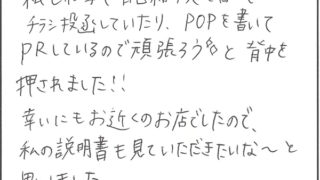 チラシ投函していたり、POPを書いて
PRしているので頑張ろう!!と背中を
押されました!!
幸いにもお近くのお店でしたので、
私の説明書も見ていただきたいな〜と
思いました